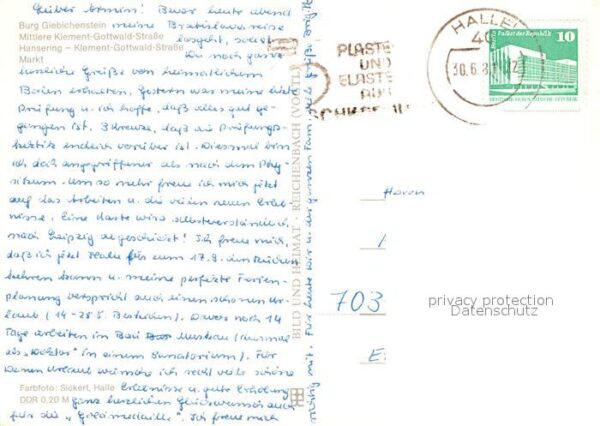 Lieber Armin! Bevor heute abend
Burg Giebichenstein
meine Bratislavareise
Mittlere Klement-Gottwald-Straße
losgeht, sollst
Hansering – Klement-Gottwald-Straße
Du noch ganz
Markt
herzliche Grüße vom heimatlichen
Boden erhalten. Gestern war meine letzte
Prüfung u. ich hoffe, daß alles gut ge-
gangen ist. Bin
froh, daß die Prüfungs-
hektik endlich vorüber ist. Diesmal bin
ich doch angegriffener als nach dem Phy-
sikum. Um so mehr freue ich mich jetzt
auf das Arbeiten u. die vielen neuen Erleb-
nisse. Eine Karte wird selbstverständlich
nach Leipzig geschickt! Ich freue mich,
daß ich jetzt Halle für zum 17.9. den Rücken
kehren kann u. meine perfekte Ferien-
planung verspricht auch einen schönen Ur-
laub (14.-28.8. Davor noch 14
Tage arbeiten in Bad Muskau (diesmal
als "Doktor" in einem Sanatorium). Für
Deinen Urlaub wünsche ich recht viele schöne
Farbfoto: Sickert, Halle
Erlebnisse u. gute Erholung
DDR 0,20 M
ganz herzlichen Glückwunsch auch
für die "Goldmedaille". Ich freue mich
richtig mit. Für heute Dir u. der ganzen Fam.
BILD UND HEIMAT · REICHENBACH (VOGTL)
PLASTE
UND
ELASTE
AUS
SCHKOPAU
HALLE
40
30.6.8
Berlin Palast der Republik
10
DEUTSCHE DEMOKRATISCHE REPUBLIK
Herrn
703
E
privacy protection
Datenschutz